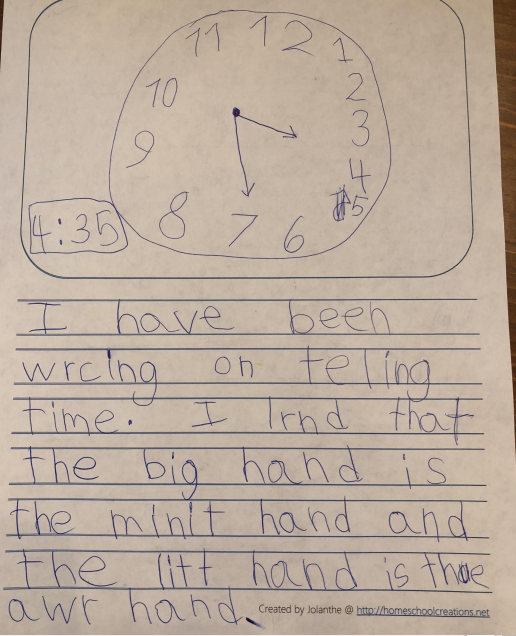 11 12 1
10 2
9 3
4
8 7 6 5
4:35
I have been
wrcing on teling
time. I lrnd that
the big hand is
the minit hand and
the litt hand is the
awr hand.
Created by Jolanthe @ http://homeschoolcreations.net